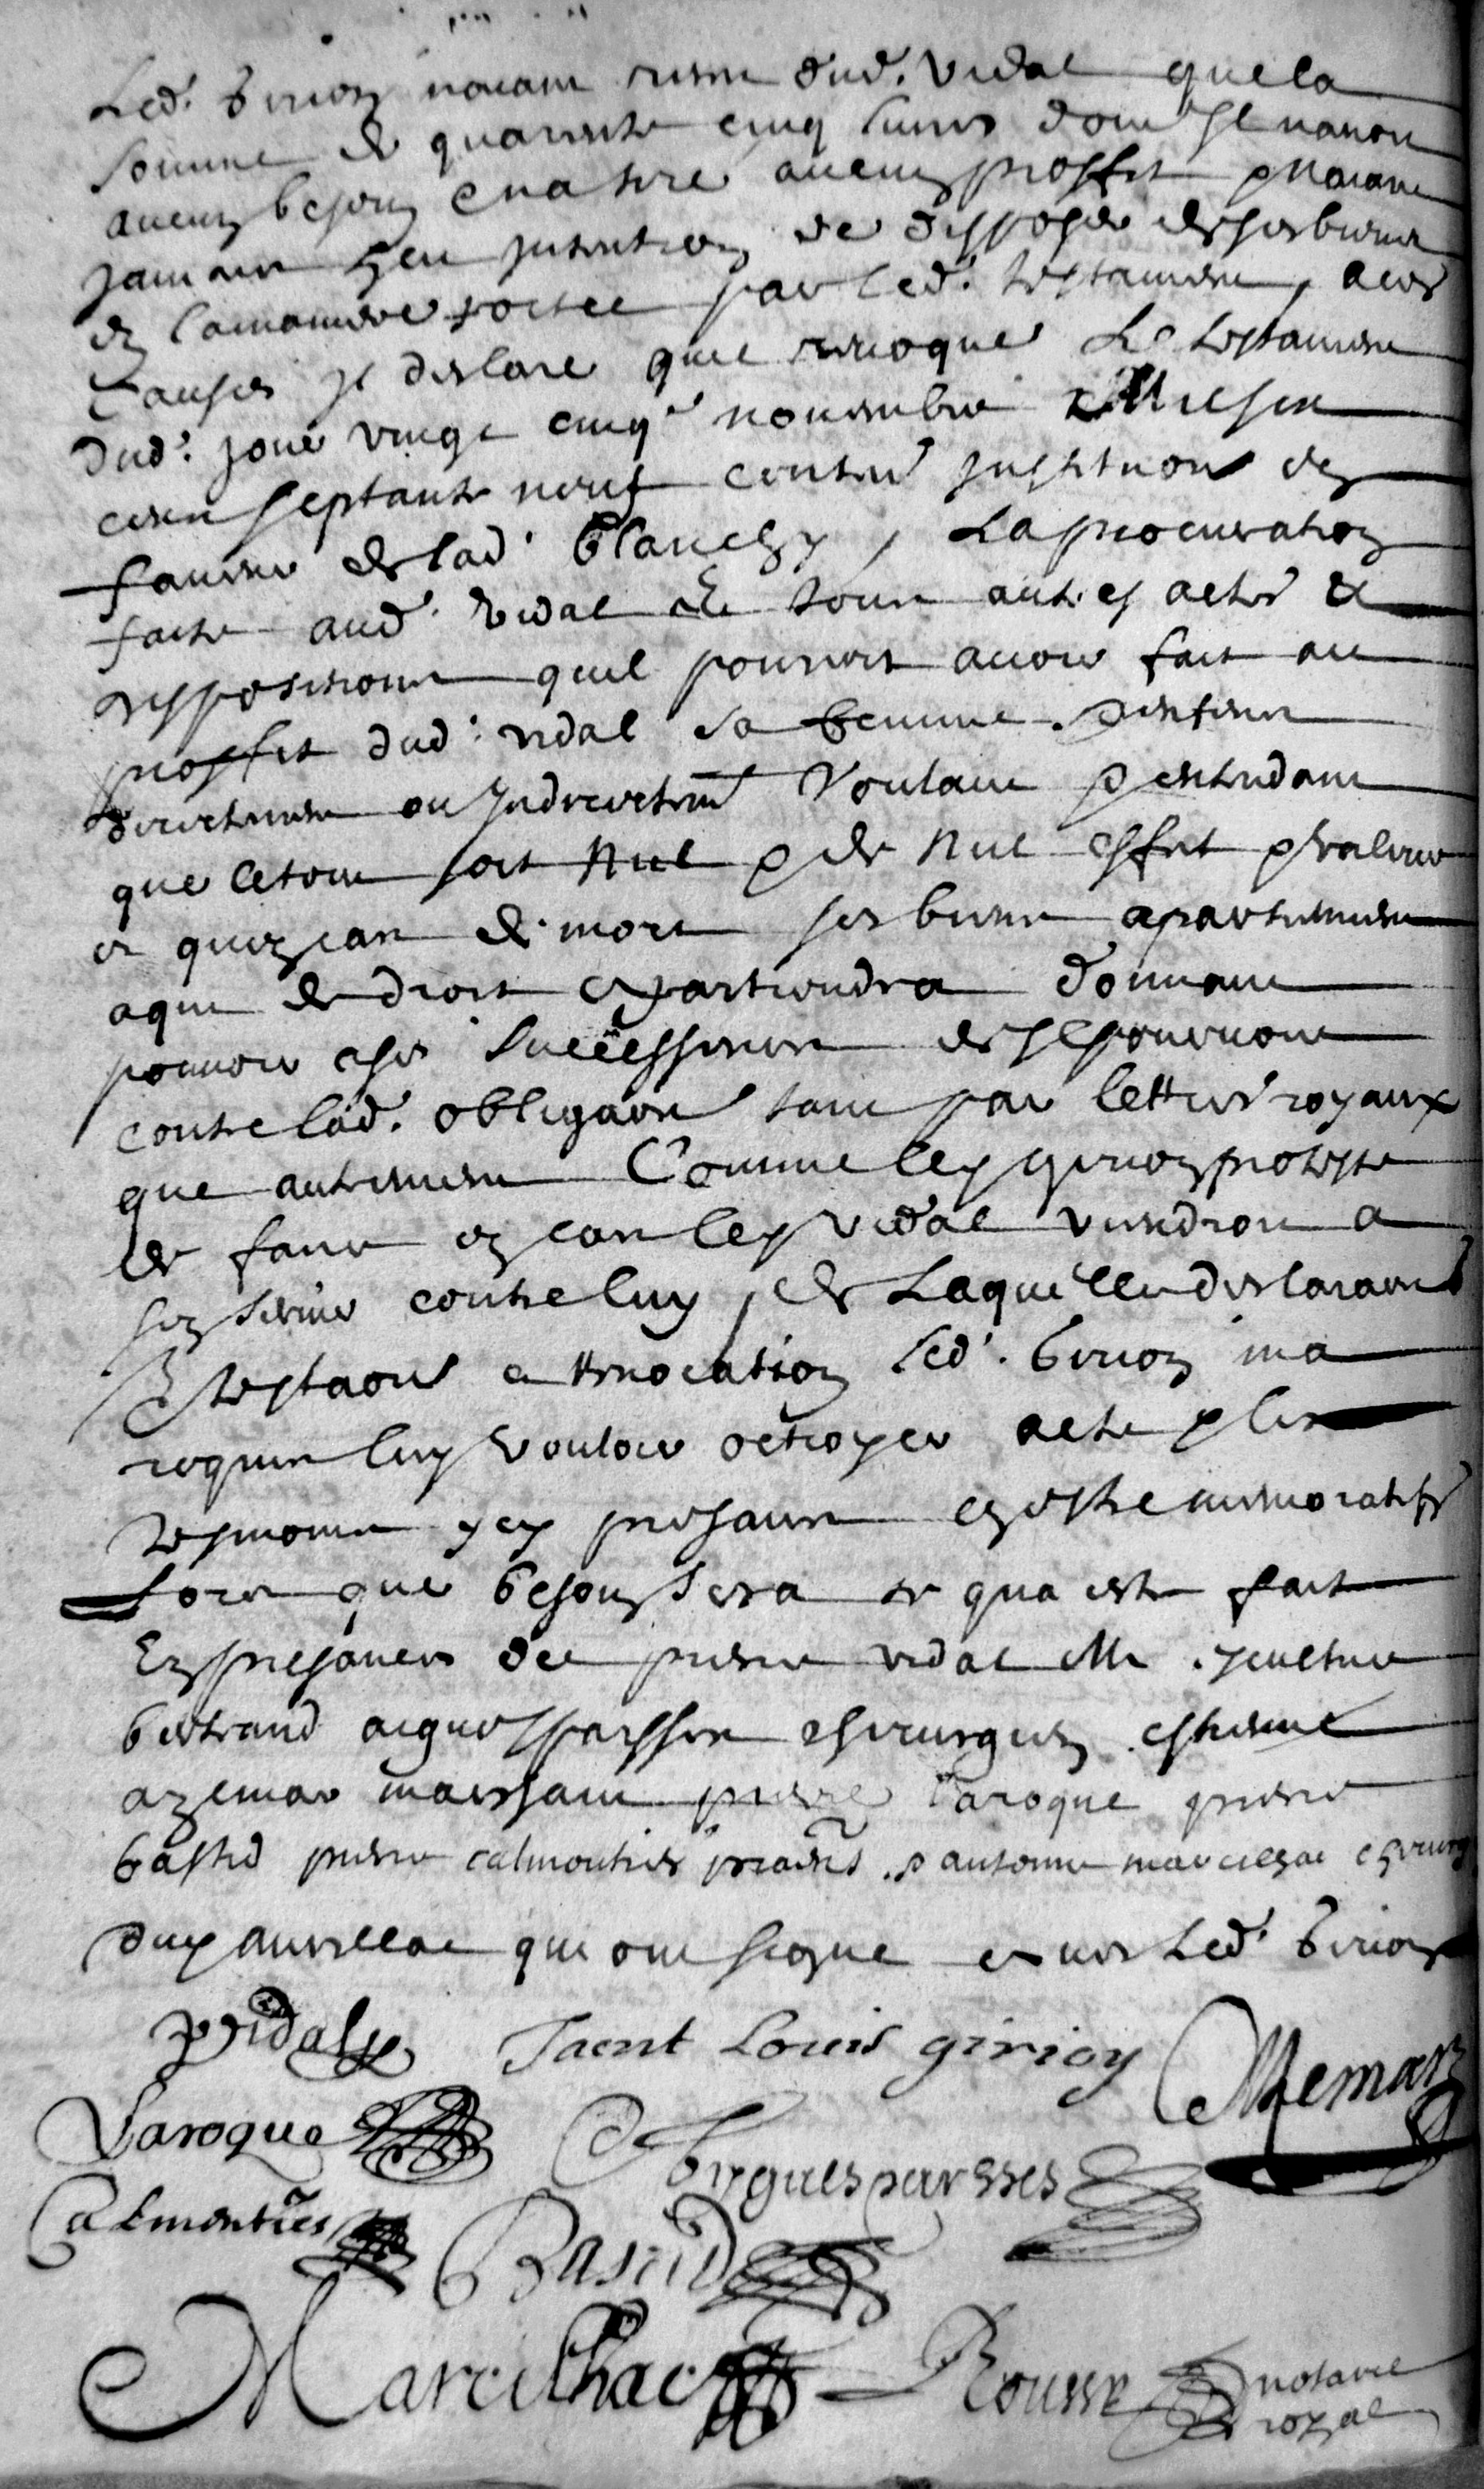 Led. Girioy nayant recu dud. Vidal que la
somme de quarente cinq livres dont il navoit
aucun besoin et na tiré aucun proffit et nayant
jamais heu intention de disposer de ses biens
en la maniere portée par led. testament, a ces
causes il declare quil revoque le testament
dud. jour vingt cinqe novembre mil six
cens septante neuf contenant institution en
faveur de lad. Blanchy, la procuration
faite aud. Vidal et tous autres actes et
dispositions quil pourroit avoir fait au
proffit dud. Vidal sa femme et enfens
directement ou indirectemt voulant et entendant
que le tout soit nul et de nul effet et valeur
et quen cas de mort ses biens apartiennent
a qui de droit apartiendra donnant
pouvoir a ses successeurs de se pourvoir
contre lad. obligaon tant par lettres royaux
que autrement comme led Girioy proteste
de faire en cas led Vidal viendroit a
sen servir contre luy, de laquelle declaraon
protestaon et revocation led. Girioy ma
requis luy vouloir octroyer acte et les
tesmoins icy presans en estre memoratifs
lors que besoin sera ce qua este fait
en presance de pierre Vidal Me sculteur
bertrand aigueparsses chirurgien estienne
azemar marchant pierre Laroque pierre
bastid pierre calmonties praticiens et antoine marcilhac chirurg
duy aurillac qui ont signe avec led. Girioy
P Vidal
Jaent Louis girioy
Azemar
Laroque
Aygues parsses
Calmonties
Bastid
Marcilhac
Rousse notaire
royal